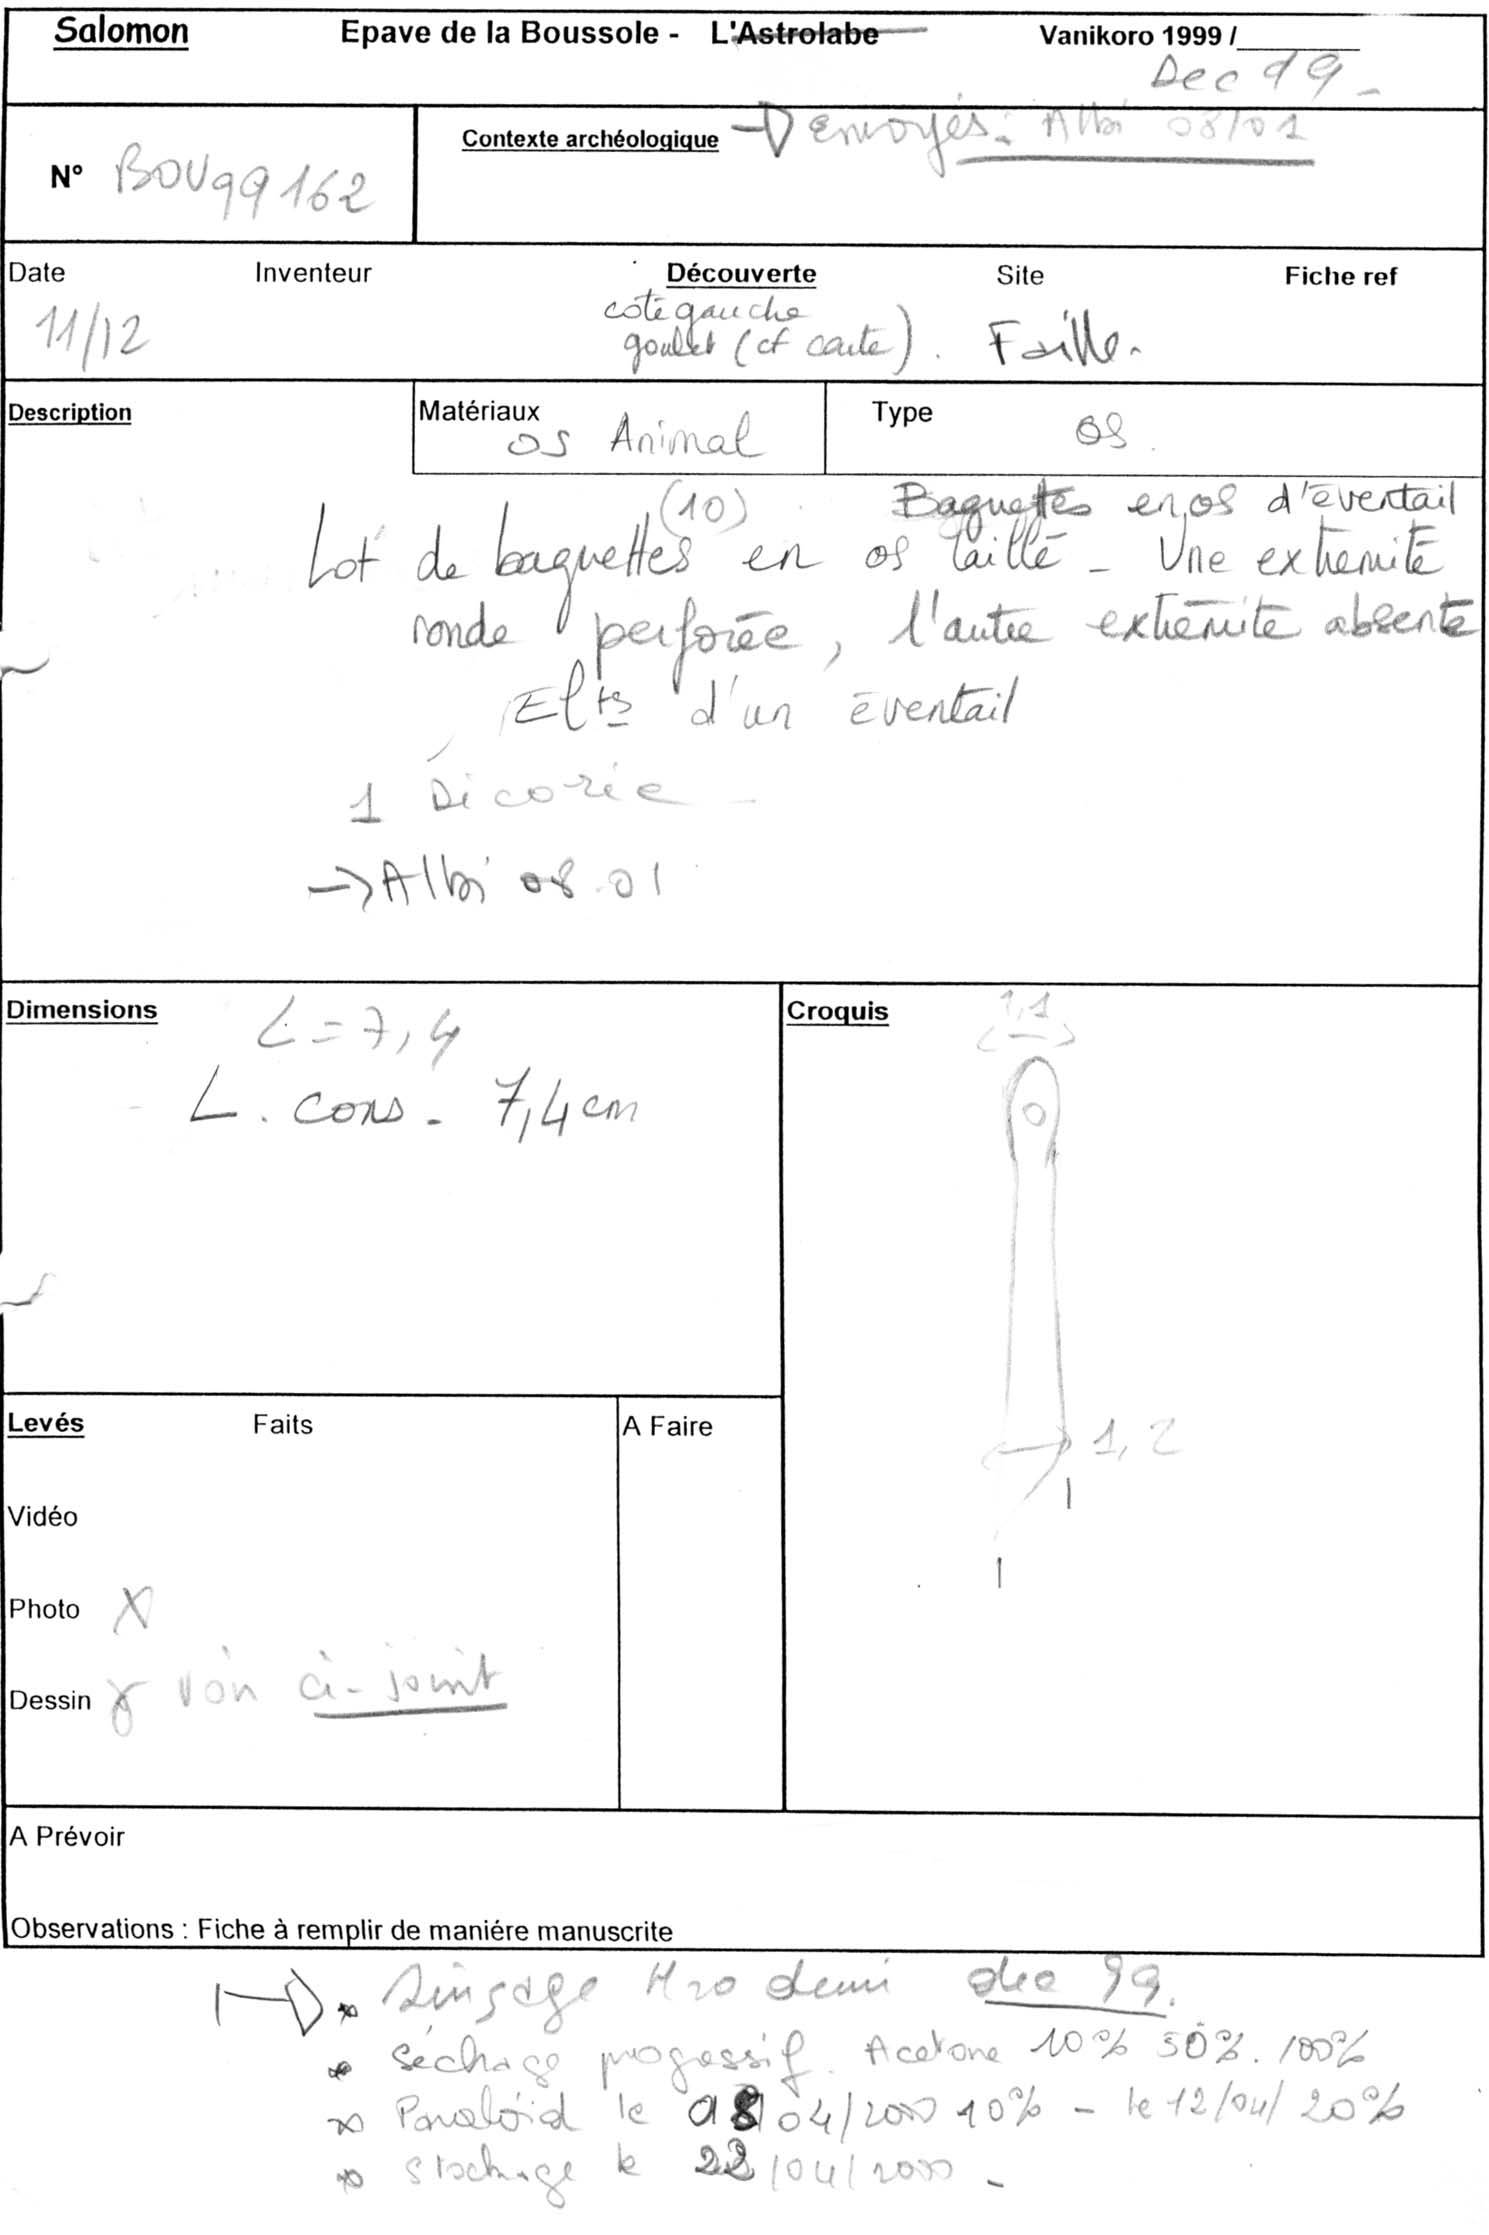 Salomon Epave de la Boussole - L'Astrolabe Vanikoro 1999 /
Dec 99 -
N° BOU 99 162 Contexte archéologique → Envoyés : Albi 08/01
Date Inventeur Découverte Site Fiche ref
11/12 coté gauche
goulet (cf carte). Faille.
Description Matériaux Type
os Animal os.
(10) Baguettes en os d'éventail
Lot de baguettes en os taillé - Une extremité
ronde perforée, l'autre extrémité absente
Elts d'un éventail
1 Décorée -
→ Albi 08.01
Dimensions Croquis
L = 7,4
L. cons. 7,4 cm
1,1
1,2
Levés Faits A Faire
Vidéo
Photo X
Dessin X voir ci-joint
A Prévoir
Observations : Fiche à remplir de maniére manuscrite
Rinçage H2O demi dec 99.
Séchage progessif. Acetone 10% 50%. 100%
Paraloïd le 08/04/2000 10% - le 12/04/ 20%
Stockage le 22/04/2000 -